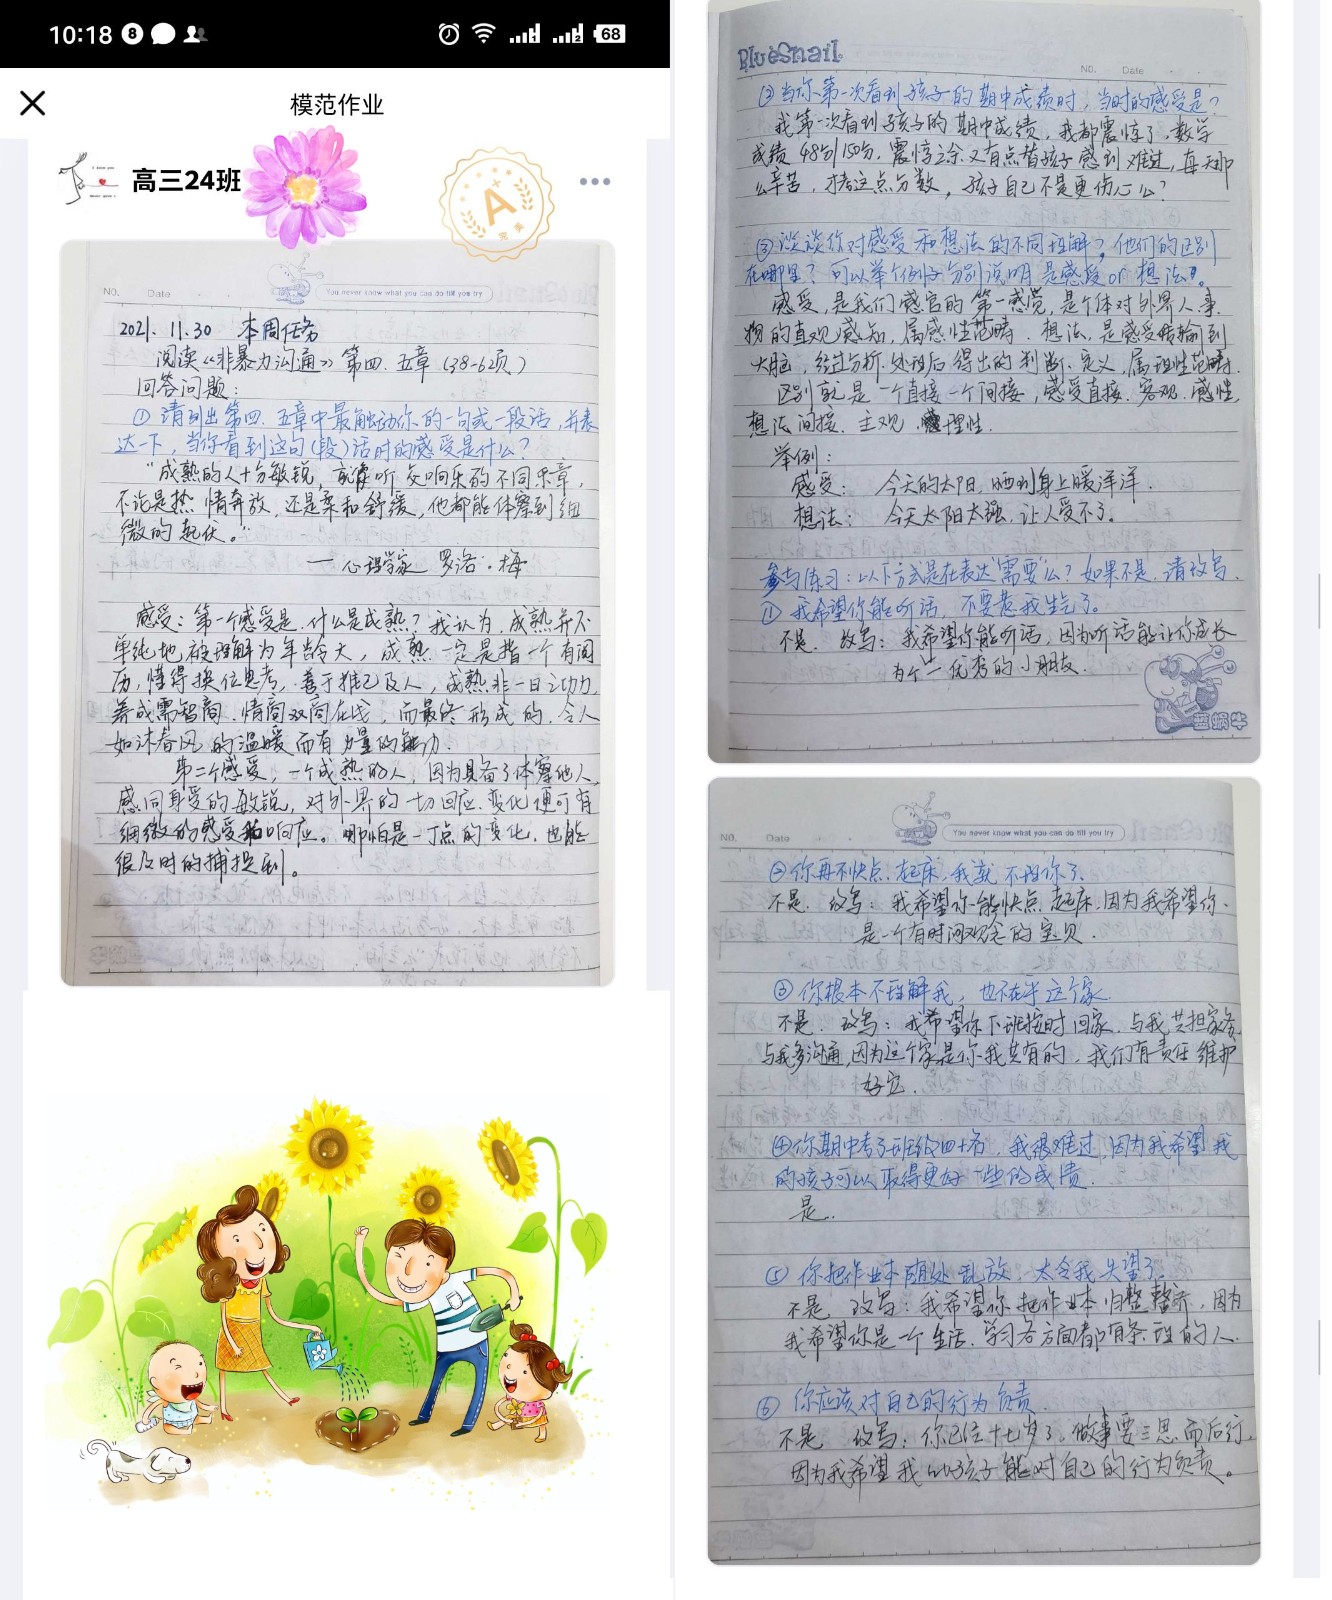 10:18
68
模范作业
高三24班
A
完美
You never know what you can do till you try
No. Date
2021. 11.30 本周任务
阅读《非暴力沟通》第四.五章(38-62页)
回答问题:
① 请列出第四.五章中最触动你的一句或一段话,并表
达一下,当你看到这句(段)话时的感受是什么?
"成熟的人十分敏锐,就像听交响乐的不同乐章,
不论是热情奔放,还是柔和舒缓,他都能体察到细
微的起伏。"
——心理学家 罗洛·梅
感受:第一个感受是.什么是成熟?我认为,成熟并不
单纯地被理解为年龄大,成熟一定是指一个有阅
历,懂得换位思考.善于推己及人,成熟非一日之功力,
养成需智商.情商双商在线,而最终形成的.令人
如沐春风的温暖而有力量的能力.
第二个感受,一个成熟的人,因为具备了体察他人,
感同身受的敏锐,对外界的一切回应.变化便可有
细微的感受和响应。哪怕是一丁点的变化.也能
很及时的捕捉到。
BlueSnail
No. Date
② 当你第一次看到孩子的期中成绩时,当时的感受是?
我第一次看到孩子的期中成绩,我都震惊了.数学
成绩48分/150分.震惊之余又有点替孩子感到难过,每天那
么辛苦,才考这点分数,孩子自己不是更伤心么?
③ 谈谈你对感受和想法的不同理解?他们的区别
在哪里?可以举个例子分别说明是感受or想法?
感受,是我们感官的第一感觉,是个体对外界人.事.
物的直观感知,属感性范畴.想法,是感受传输到
大脑,经过分析.处理后得出的判断.定义,属理性范畴.
区别就是一个直接一个间接,感受直接.客观.感性,
想法间接.主观.理性.
举例:
感受: 今天的太阳,晒到身上暖洋洋.
想法: 今天太阳太强,让人受不了。
参与练习:以下方式是在表达"需要"么?如果不是.请改写.
① 我希望你能听话,不要惹我生气了。
不是.改写:我希望你能听话,因为听话能让你成长
为一个优秀的小朋友.
蓝蜗牛
No. Date
You never know what you can do till you try
② 你再不快点起床,我就不理你了.
不是.改写:我希望你能快点起床.因为我希望你
是一个有时间观念的宝贝.
③ 你根本不理解我,也不在乎这个家.
不是.改写:我希望你下班按时回家.与我共担家务,
与我多沟通,因为这个家是你我共有的,我们有责任维护
好它.
④ 你期中考了班级四十名,我很难过,因为我希望我
的孩子可以取得更好一些的成绩.
是.
⑤ 你把作业本随处乱放,太令我失望了.
不是.改写:我希望你把作业本归整整齐,因为
我希望你是一个生活.学习各方面都有条理的人.
⑥ 你应该对自己的行为负责.
不是 改写:你已经十七岁了.做事要三思而后行,
因为我希望我的孩子能对自己的行为负责。